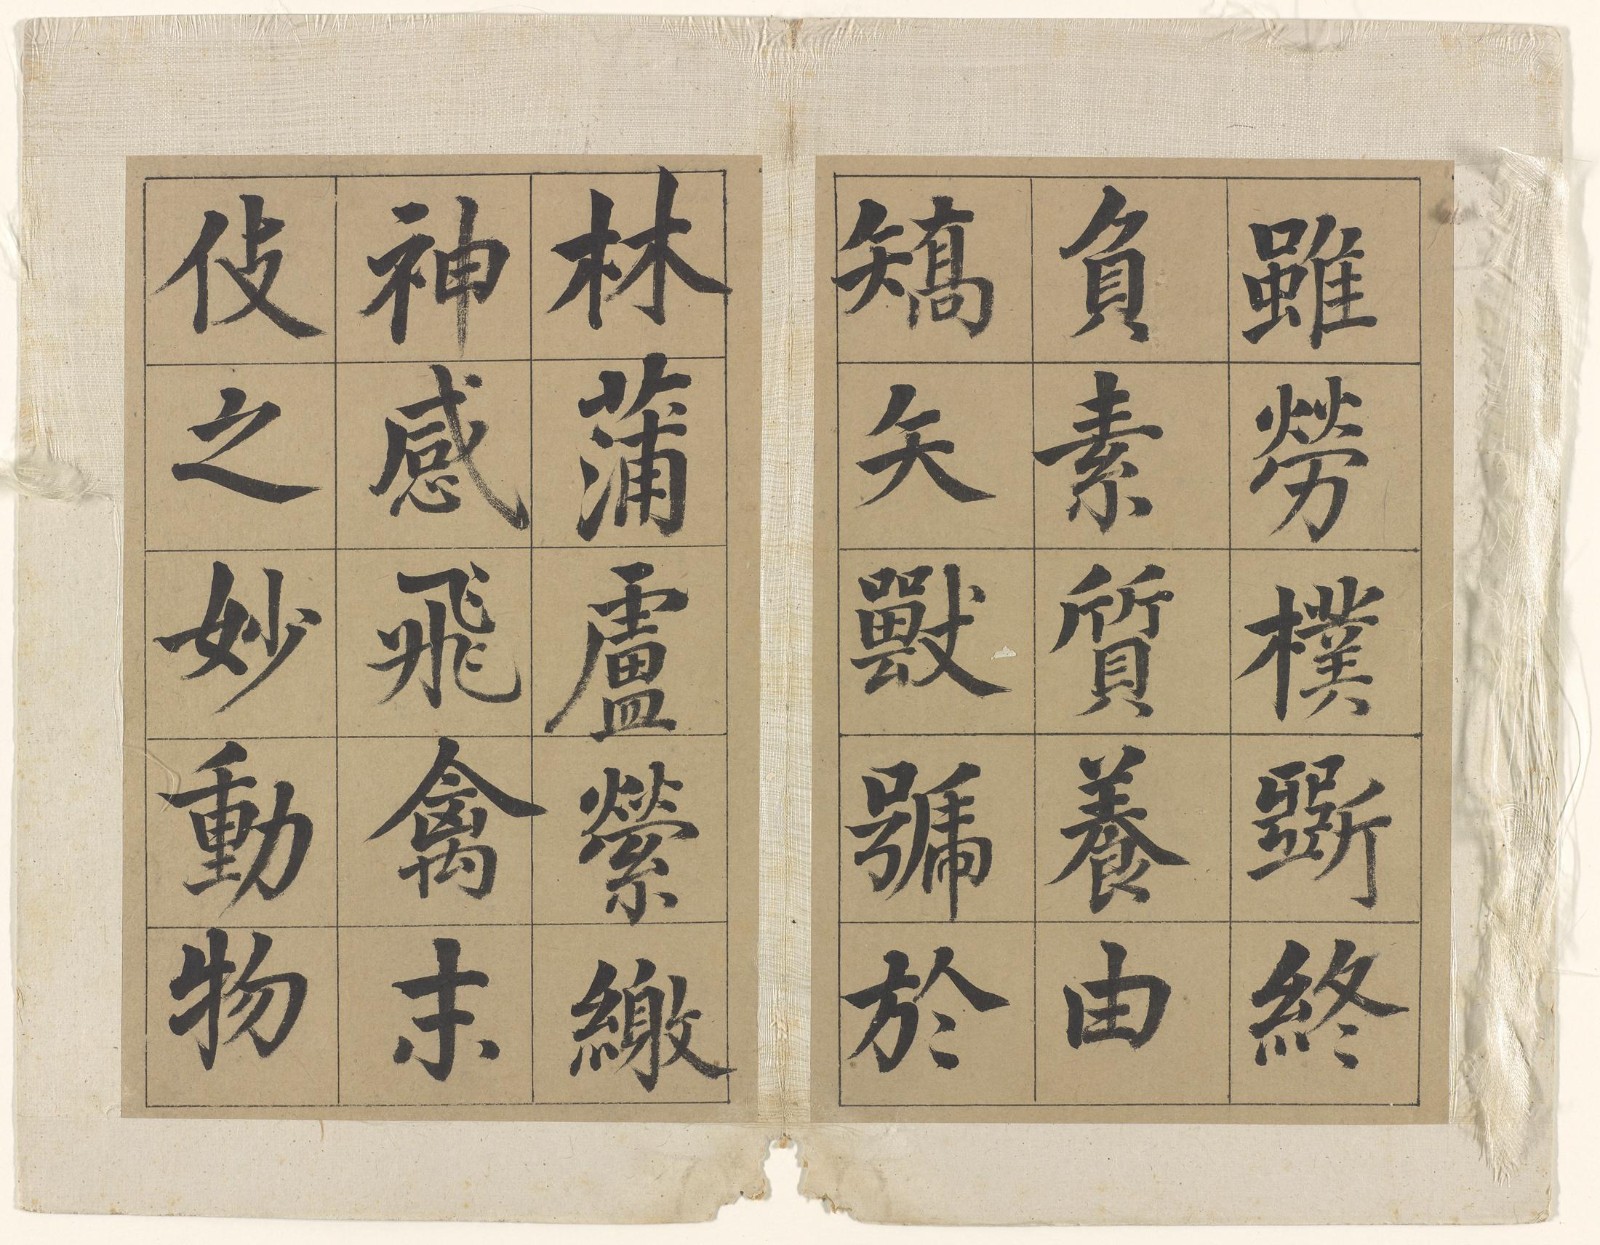 雖勞樸斲終
負素質養由
矯矢獸號於
林蒲盧縈繳
神感飛禽末
伎之妙動物